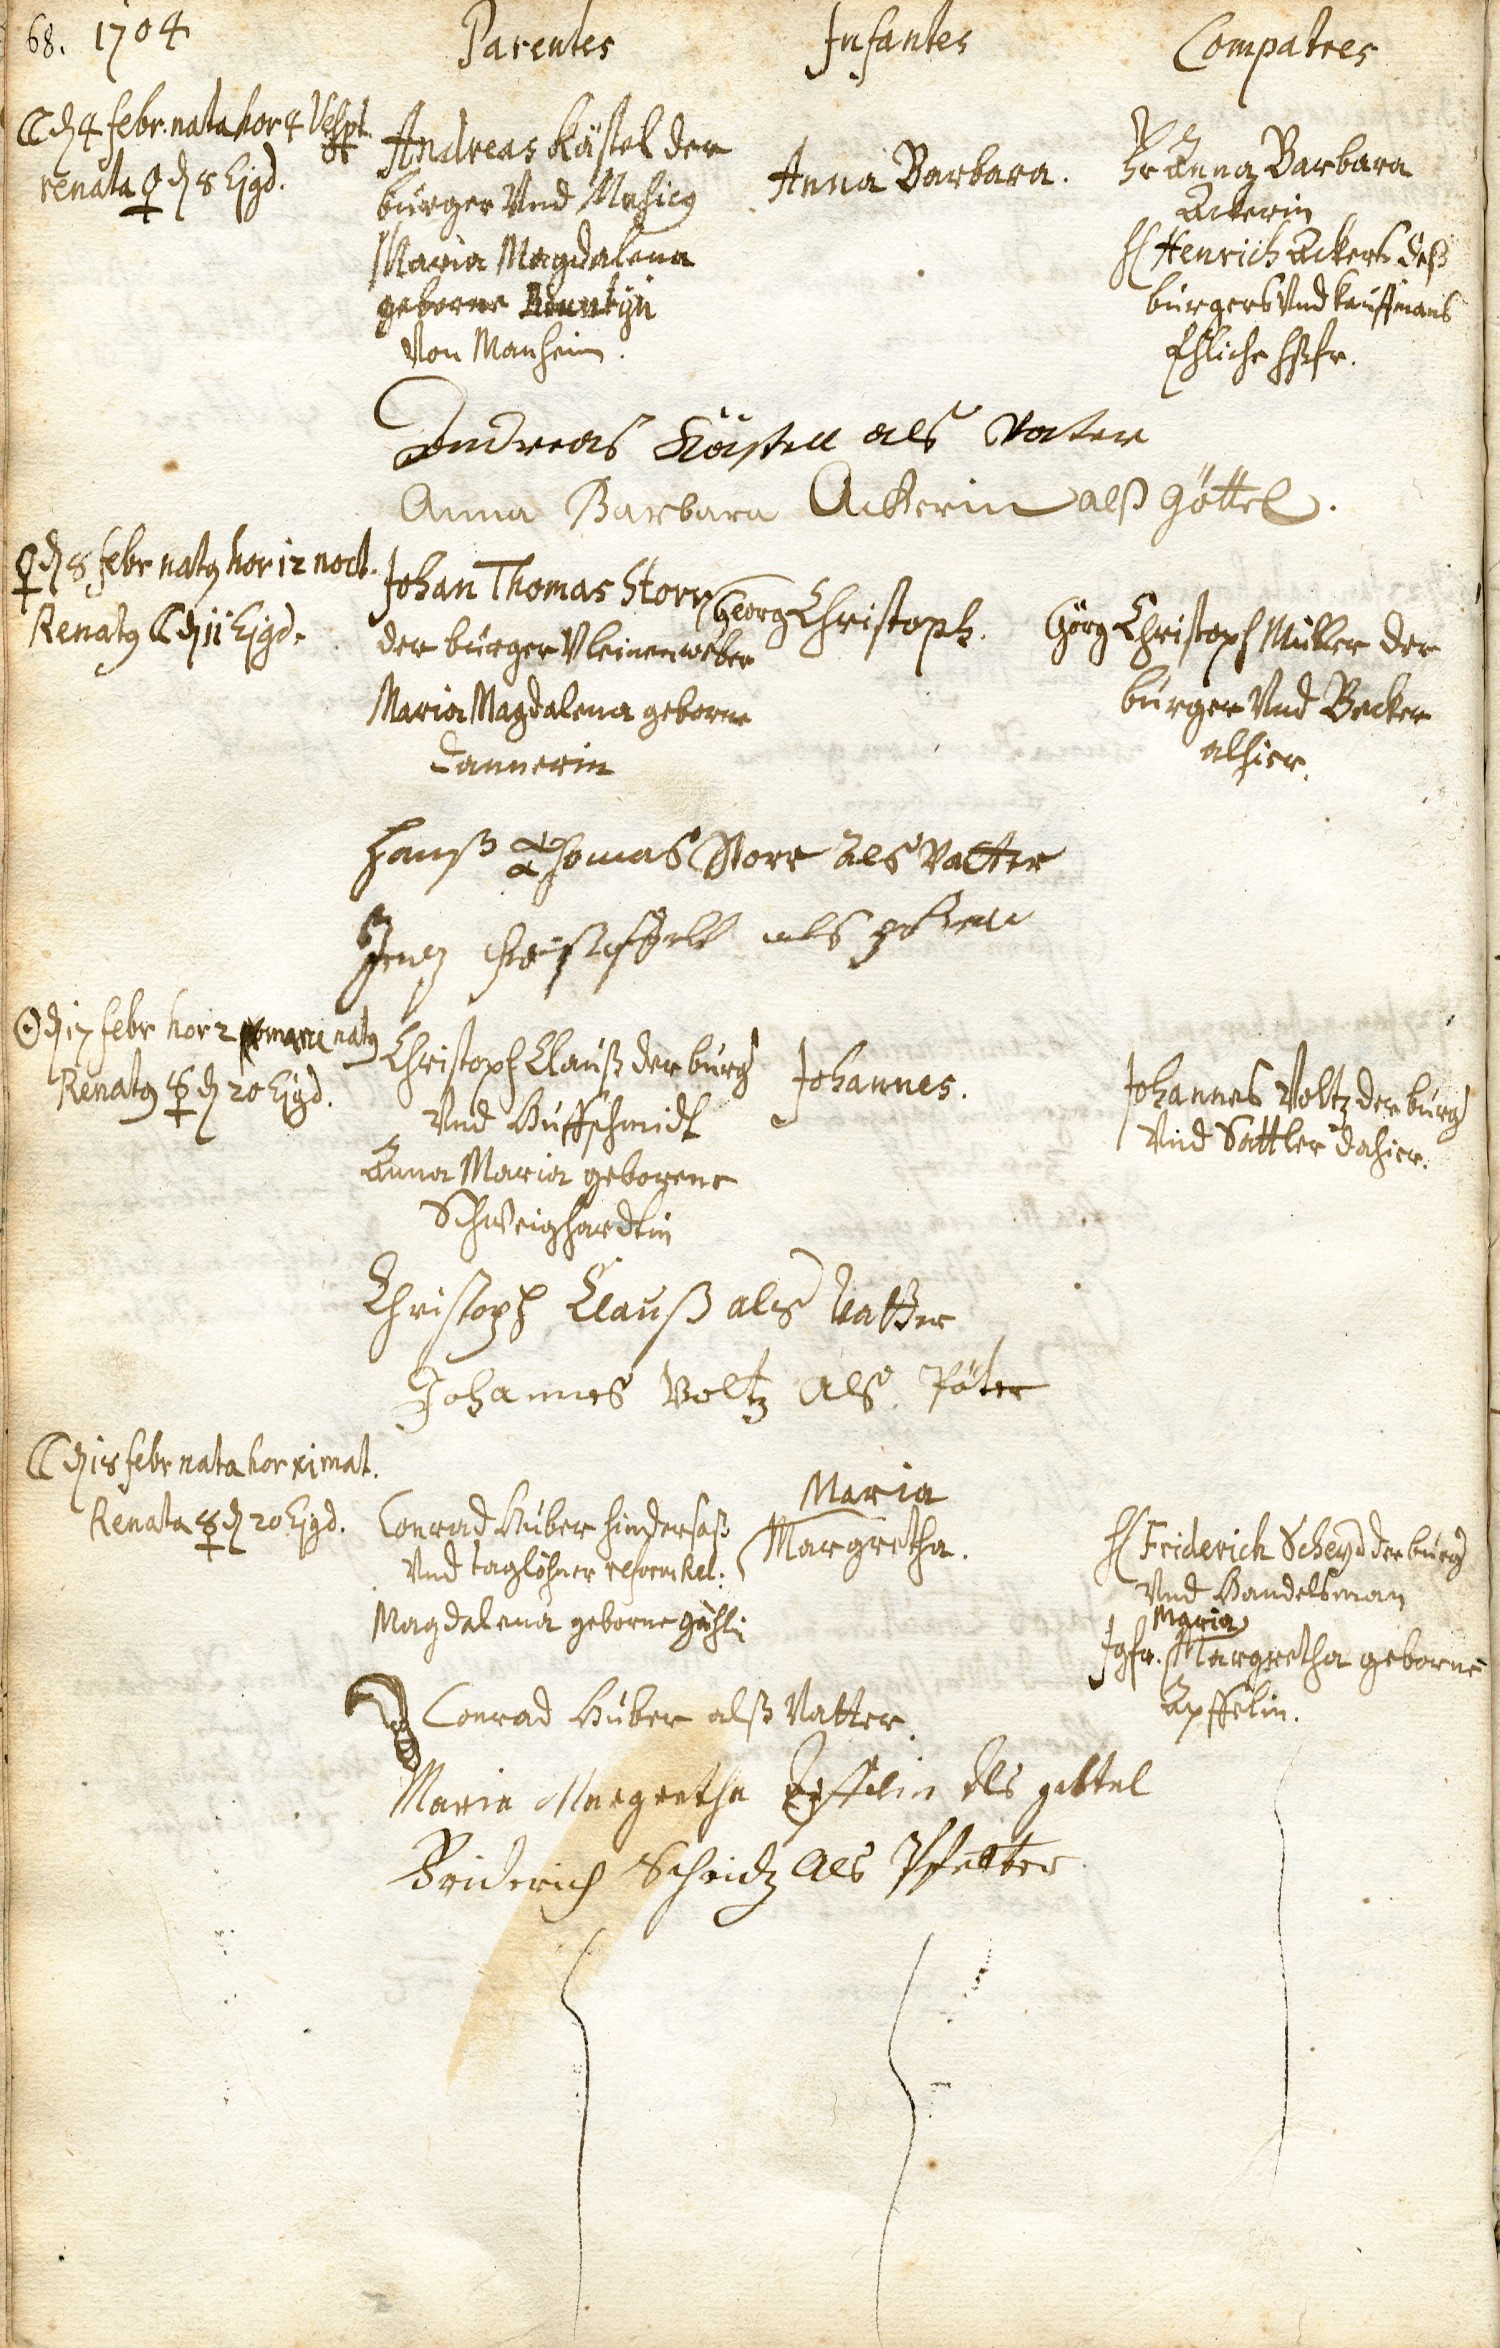 68. 1704
Parentes
Infantes
Compatres
☾ d 4 febr. nata hor 4 Vesp.
renata ♀ d 8 Ejgd.
Andreas Kästel der
bürger Vnd Musicq
Maria Magdalena
geborne
Von Manheim.
Anna Barbara.
Fr Anna Barbara
Ackerin
H Henrich Ackers deß
bürgers Vnd Kauffmans
Ehliche Hßfr.
Andreas Kästell als Vater
Anna Barbara Ackerin alß Göttel.
♀ d 8 febr natq hor 12 noct.
Renatq ☾ d 11 Ejgd.
Johan Thomas Storr
der bürger V leinenweber
Maria Magdalena geborne
Dannerin
Georg Christoph.
Görg Christoph Müller der
bürger Vnd Becker
alhier.
Hanß Thomas Storr Als Vatter
als
☉ d 17 febr hor 2 natq
Renatq ☿ d 20 Ejgd.
Christoph Clauß der burg
Vnd Huffschmidt
Anna Maria geborene
Schweighardtin
Johannes.
Johannes Voltz der burg
Vnd Sattler dahier.
Christoph Clauß als Vatter
Johannes Voltz Als Päter
☾ d 18 febr nata hor xi mat.
Renata ☿ d 20 Ejgd.
Conrad Huber hindersaß
Vnd taglöhner reform Rel.
Magdalena geborne
Maria
Margretha.
H Friderich Scheyd der burg
Vnd Handelsman
Maria
Jgfr. Margretha geborne
Äpffelin.
Conrad Huber alß Vatter.
Maria Margretha Als gettel
Friderich Scheidt Als Pfetter